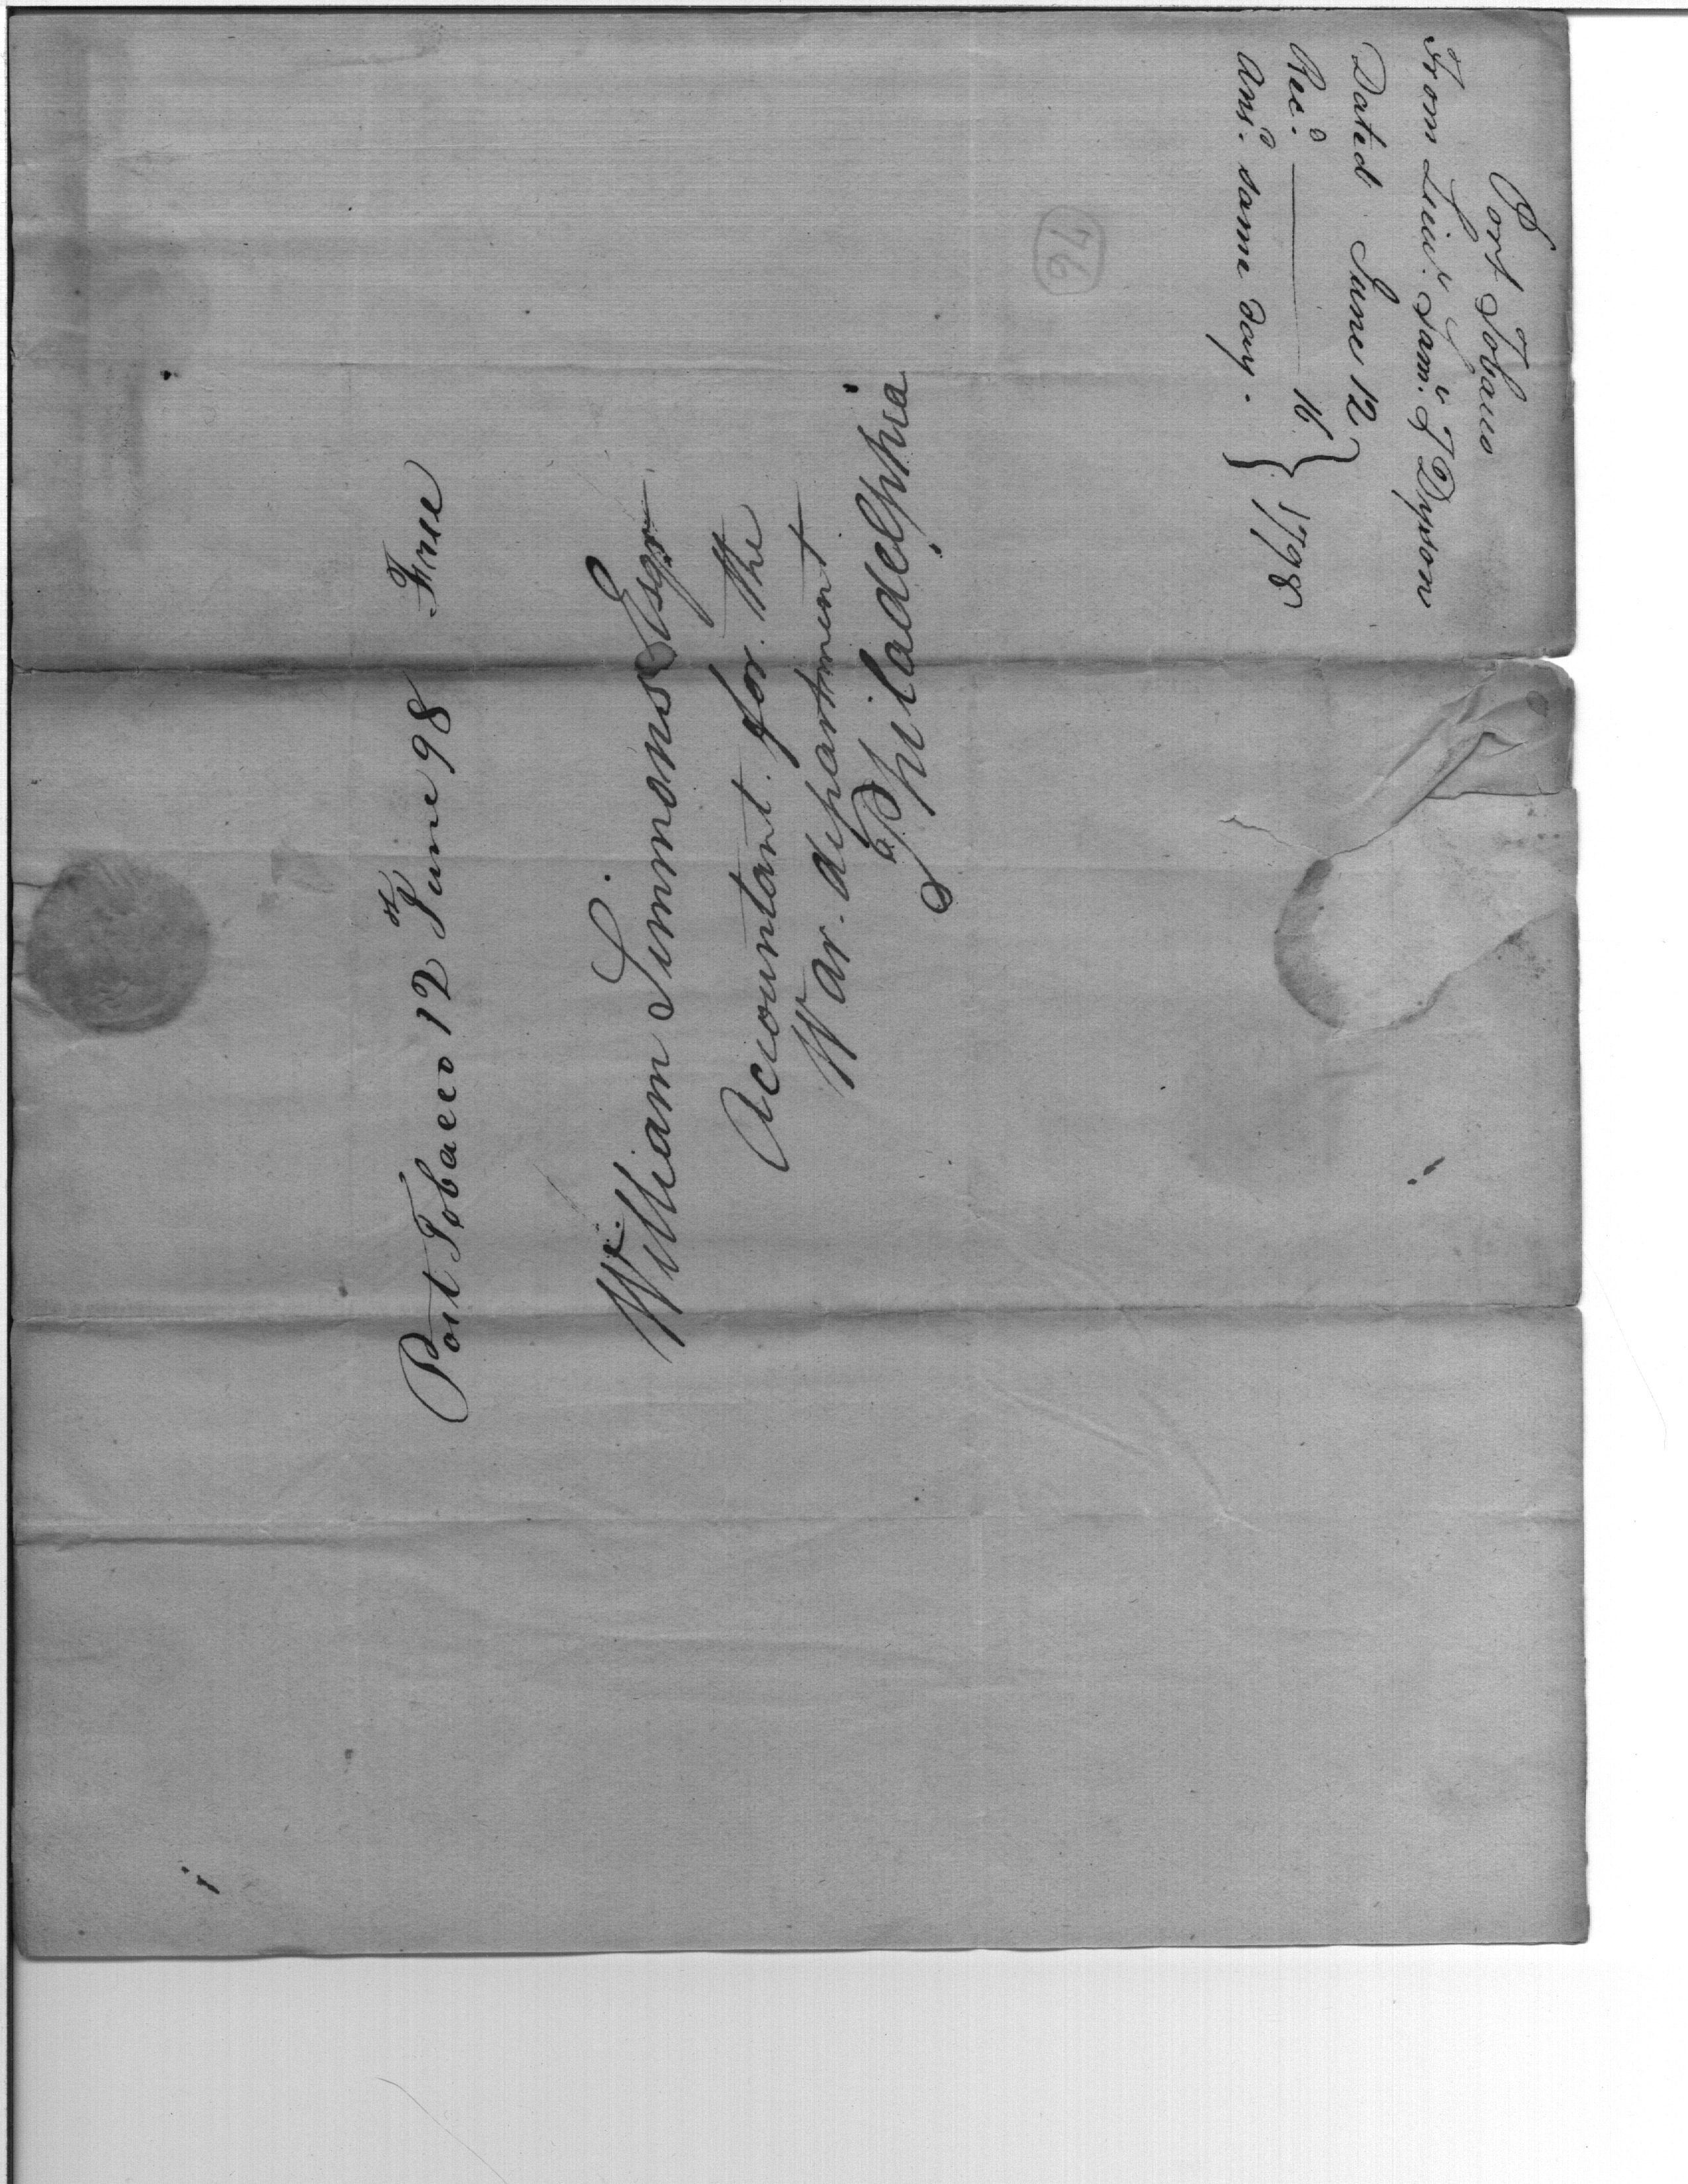 Port Tobacco
From Lieut. Saml. T Dyson
Dated June 12
Recd. 16 } 1798
Ansd. same day.
94
Port Tobacco 12th June 98 Free
William Simmons Esqr
Accountant for the
War department
Philadelphia